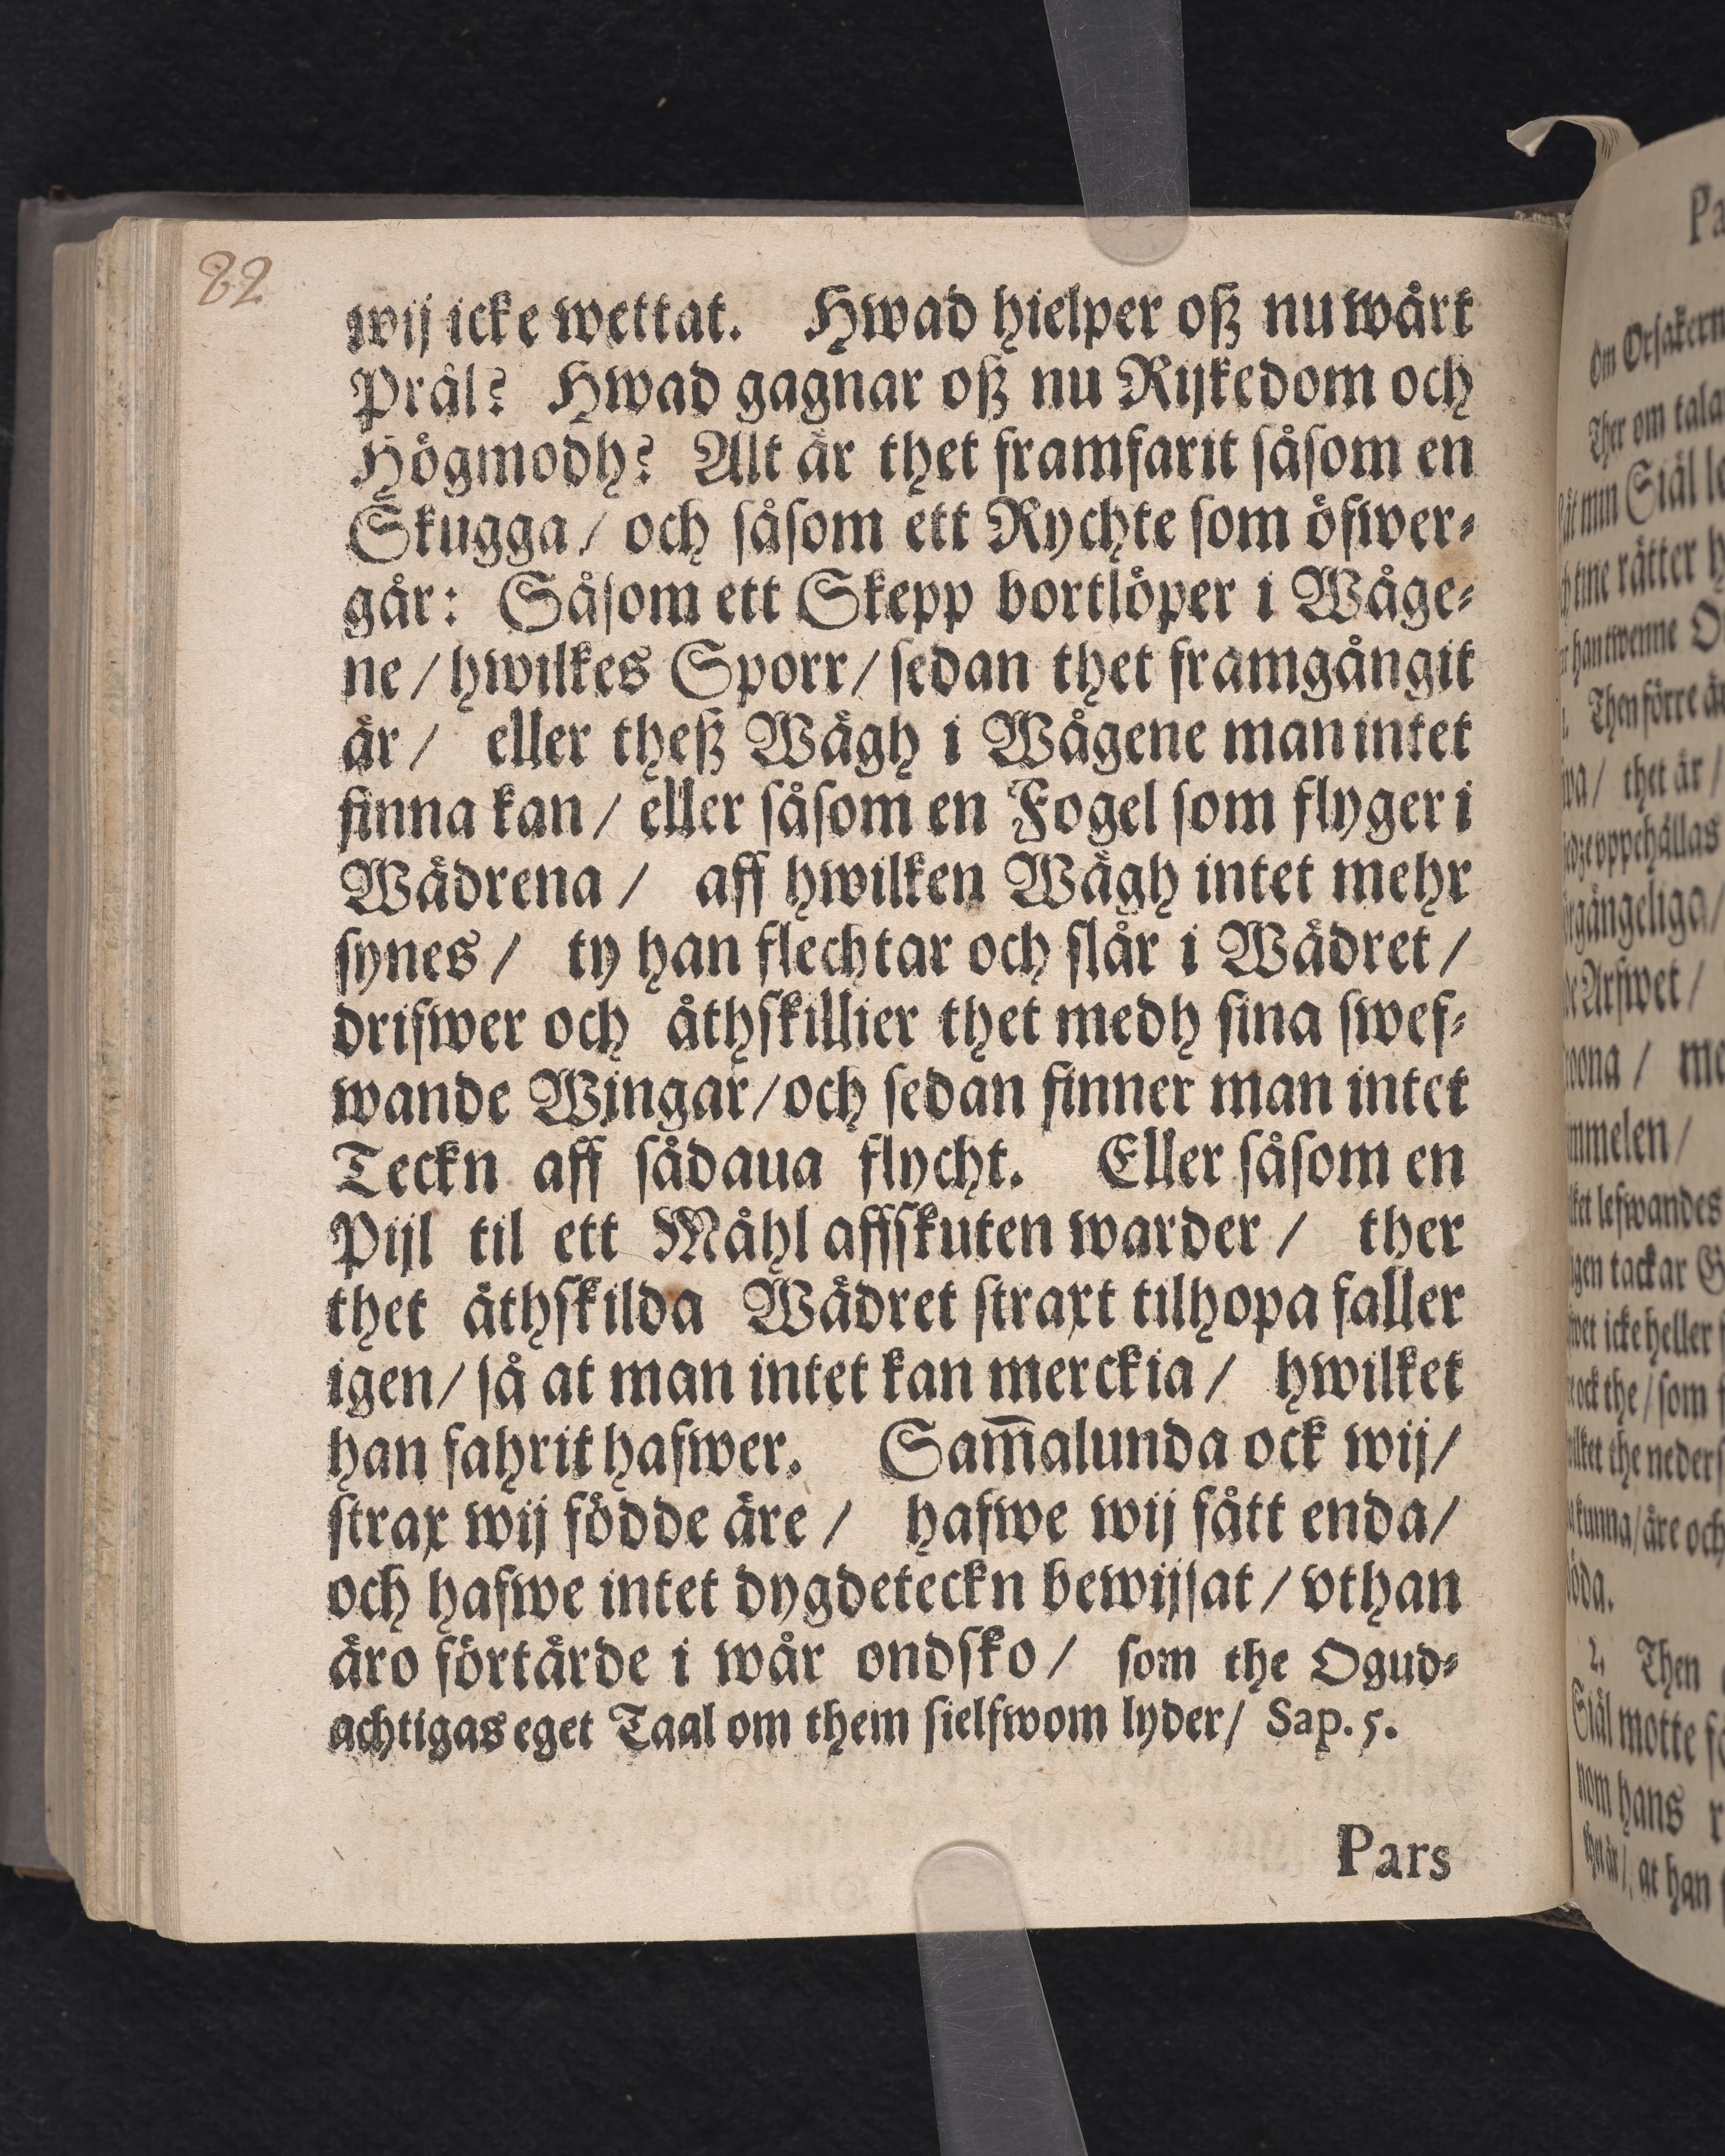 82
wij icke wettat. Hwad hielper oß nu wårt
Prål? Hwad gagnar oß nu Rijkedom och
Högmodh? Alt är thet framfarit såsom en
Skugga / och såsom ett Rychte som öfwer-
går: Såsom ett Skepp bortlöper i Wåge-
ne / hwilkes Sporr / sedan thet framgångit
är / eller theß Wägh i Wågene man intet
finna kan / eller såsom en Fogel som flyger i
Wädrena / aff hwilken Wägh intet mehr
synes / ty han flechtar och slår i Wädret /
drifwer och åthskillier thet medh sina swef-
wande Wingar / och sedan finner man intet
Teckn aff sådaua flycht. Eller såsom en
Pijl til ett Måhl affskuten warder / ther
thet åthskilda Wädret straxt tilhopa faller
igen / så at man intet kan merckia / hwilket
han fahrit hafwer. Sam̅alunda ock wij /
strax wij födde äre / hafwe wij fått enda /
och hafwe intet dygdeteckn bewijsat / vthan
äro förtärde i wår ondsko / som the Ogud-
achtigas eget Taal om them sielfwom lyder / Sap. 5.
Pars
Pa
Om Orsakern
Ther om tala
min Siäl le
tine rätter h
han twenne O
Then förre är
thet är /
oppehållas
Arfwet /
me
lefwandes
tackar G
icke heller
the / som
the neders
kunna / äre och
2. Then
Siäl motte
nom hans
thet är / at han